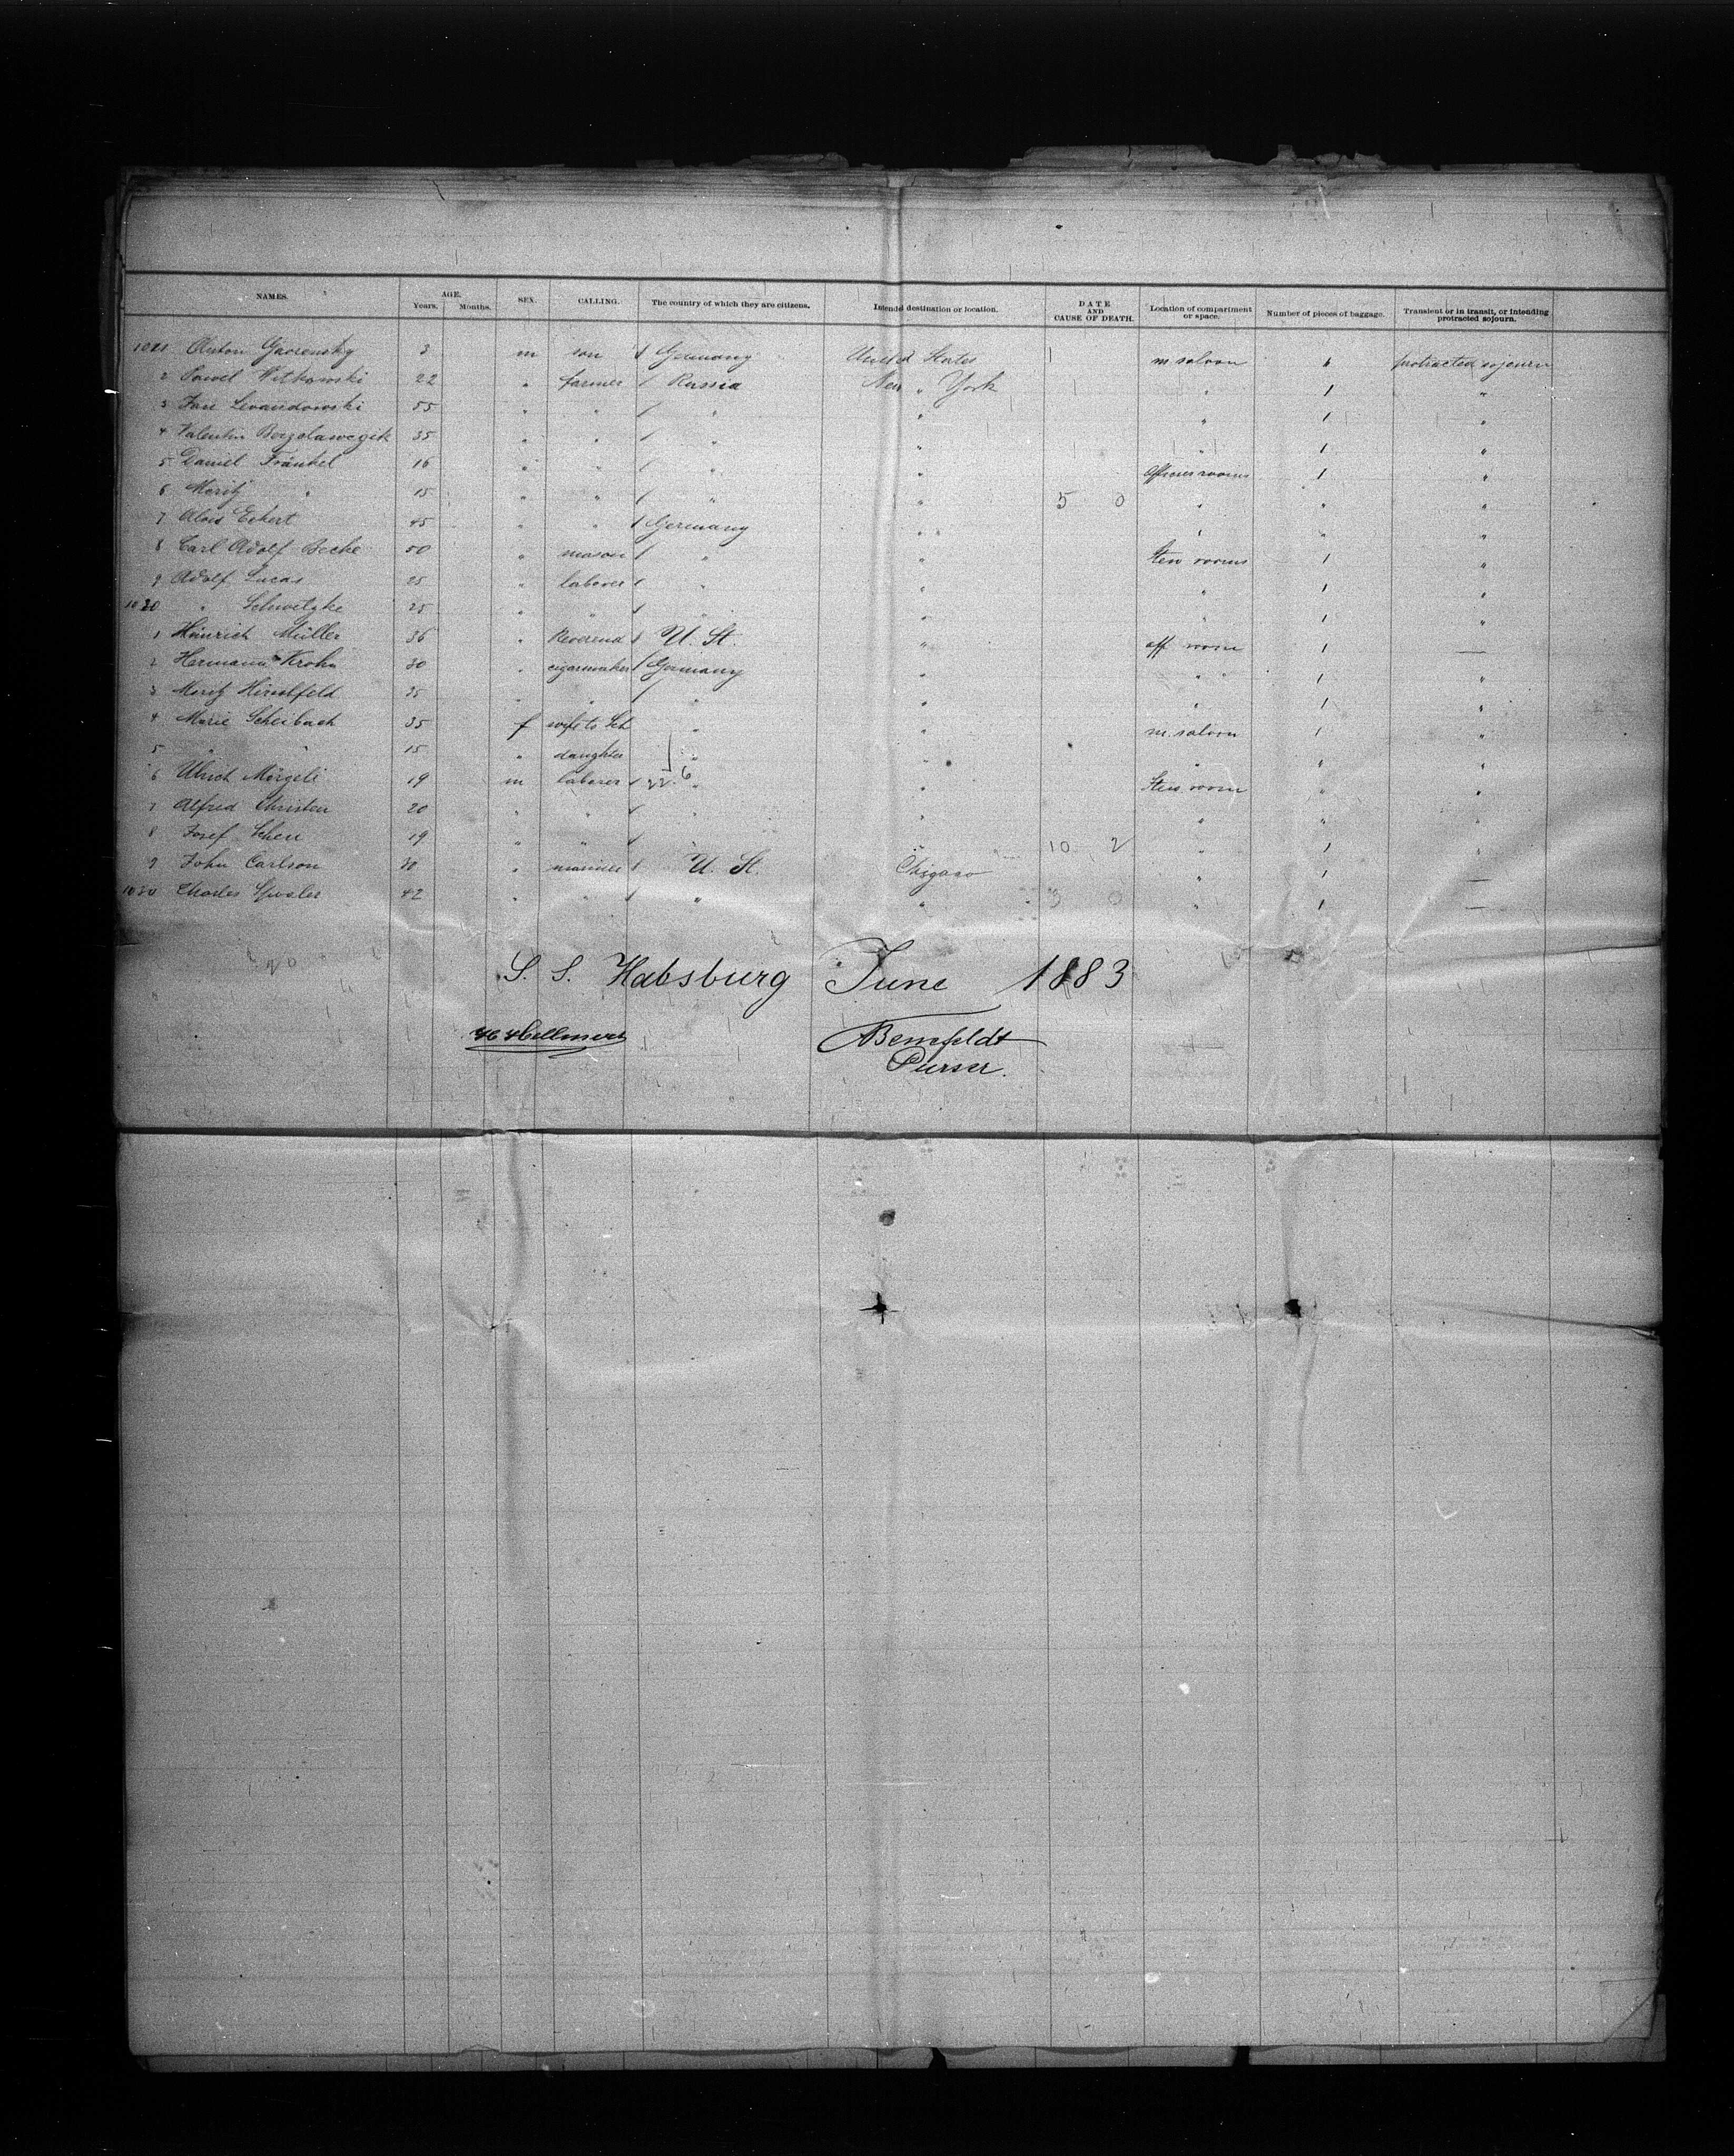 NAMES. AGE. Years. Months. SEX. CALLING. The country of which they are citizens. Intended destination or location. DATE AND CAUSE OF DEATH. Location of compartment or space. Number of pieces of baggage. Transient or in transit, or intending protracted sojourn.
1021 Anton 3 m son / Germany United States m saloon " protracted sojourn
2 Pawel Witkowski 22 " farmer / Russia New " York " 1 "
3 Levandowski 55 " " / " " " 1 "
4 Valentin 35 " " / " " " 1 "
5 Daniel Fränkel 16 " " / " " Officers rooms 1 "
6 Moritz " 15 " " / " " 5 0 " " "
7 Alois Eckert 45 " " / Germany " " " "
8 Carl Adolf 50 " mason / " " Stew rooms 1 "
9 Adolf Lucas 25 " laborer / " " " 1 "
1030 " Schwetzke 25 " " / " " " 1 "
1 Heinrich Müller 36 " Reverend / U. St. " off room 1 —
2 Hermann Krohn 30 " cigarmaker / Germany " " " 1 "
3 Moritz Hirschfeld 35 " " / " " " 1 "
4 Marie Scheibach 35 f wife to Sch " " m. saloon 1 "
5 " " 15 " daughter " " " " "
6 Ulrich Mörgeli 19 m laborer / " " Stew room " "
7 Alfred Christen 20 " " / " " " " "
8 Josef 19 " " / " 10 2 " 1 "
9 John Carlson 30 " / U. St. Chigago " 1 —
Charles 42 " " / " " 3 0 " 1 —
S. S. Habsburg June 1883
Purser.